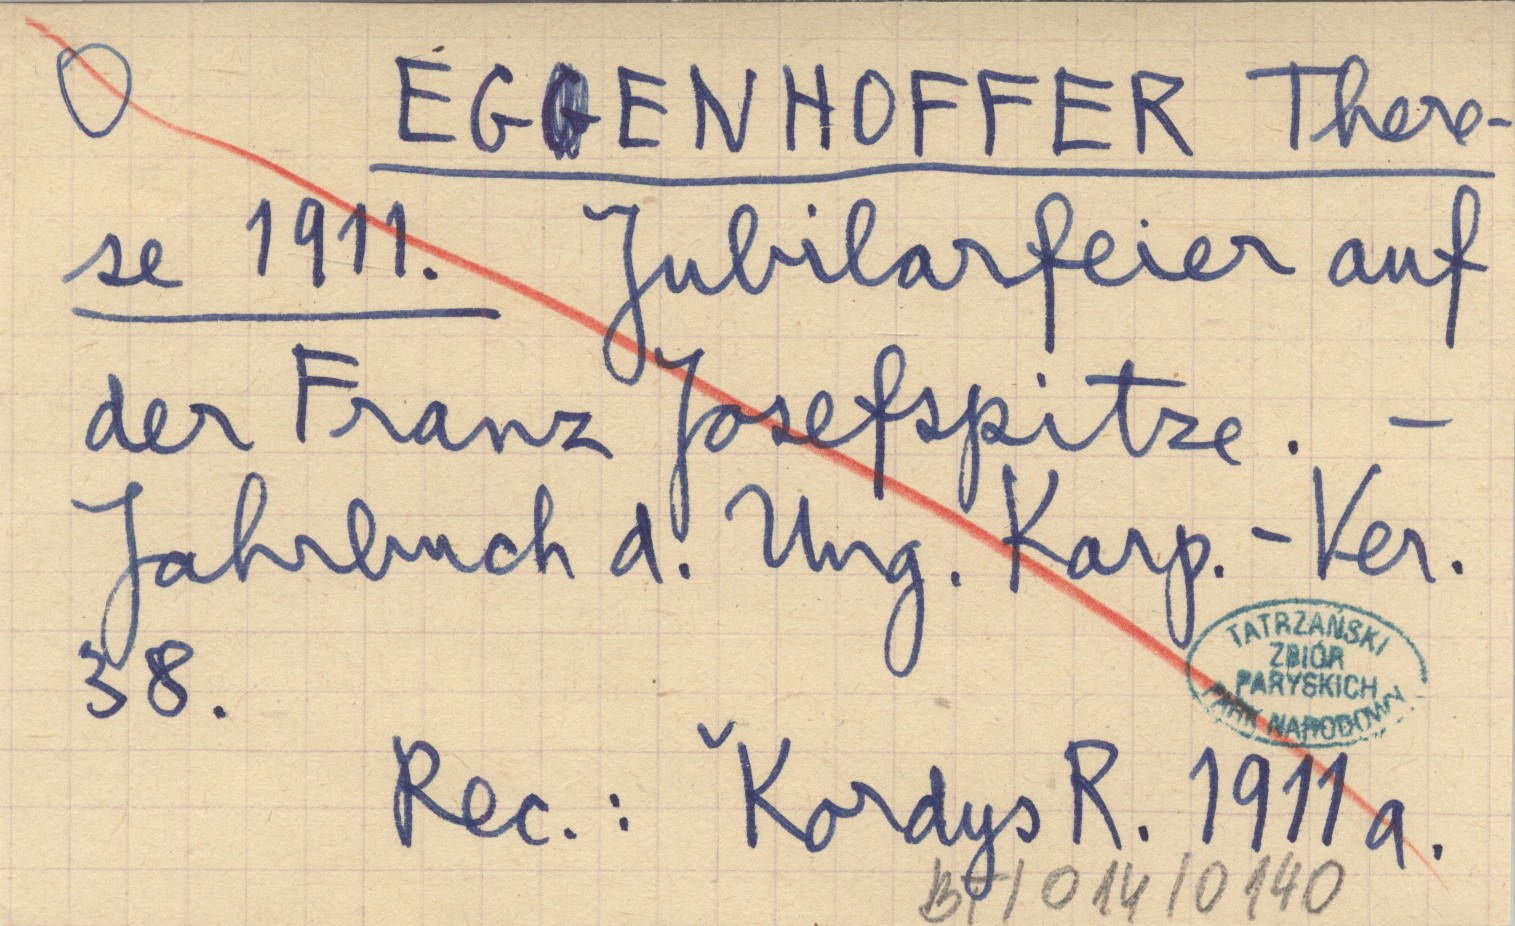 EGGENHOFFER There-
se 1911. Jubilarfeier auf
der Franz Josefspitze. -
Jahrbuch d. Ung. Karp.-Ver.
38.
TATRZAŃSKI
ZBIÓR
PARYSKICH
PARK NARODOWY
Rec.: ˇKordys R. 1911a.
BT/014/0140